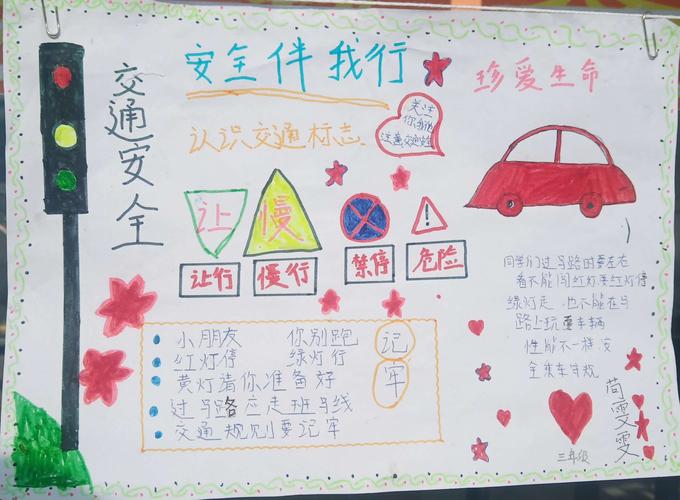 交通安全
安全伴我行
珍爱生命
认识交通标志
关注
你我他
注意交通安全
让
慢
让行
慢行
禁停
危险
小朋友 你别跑
红灯停 绿灯行
黄灯请你准备好
过马路应走班马线
交通规则要记牢
记
牢
同学们过马路时要左右
看不能闯红灯要红灯停
绿灯走 也不能在马
路上玩耍车辆
性能不一样安
全乘车
三年级
苟雯雯